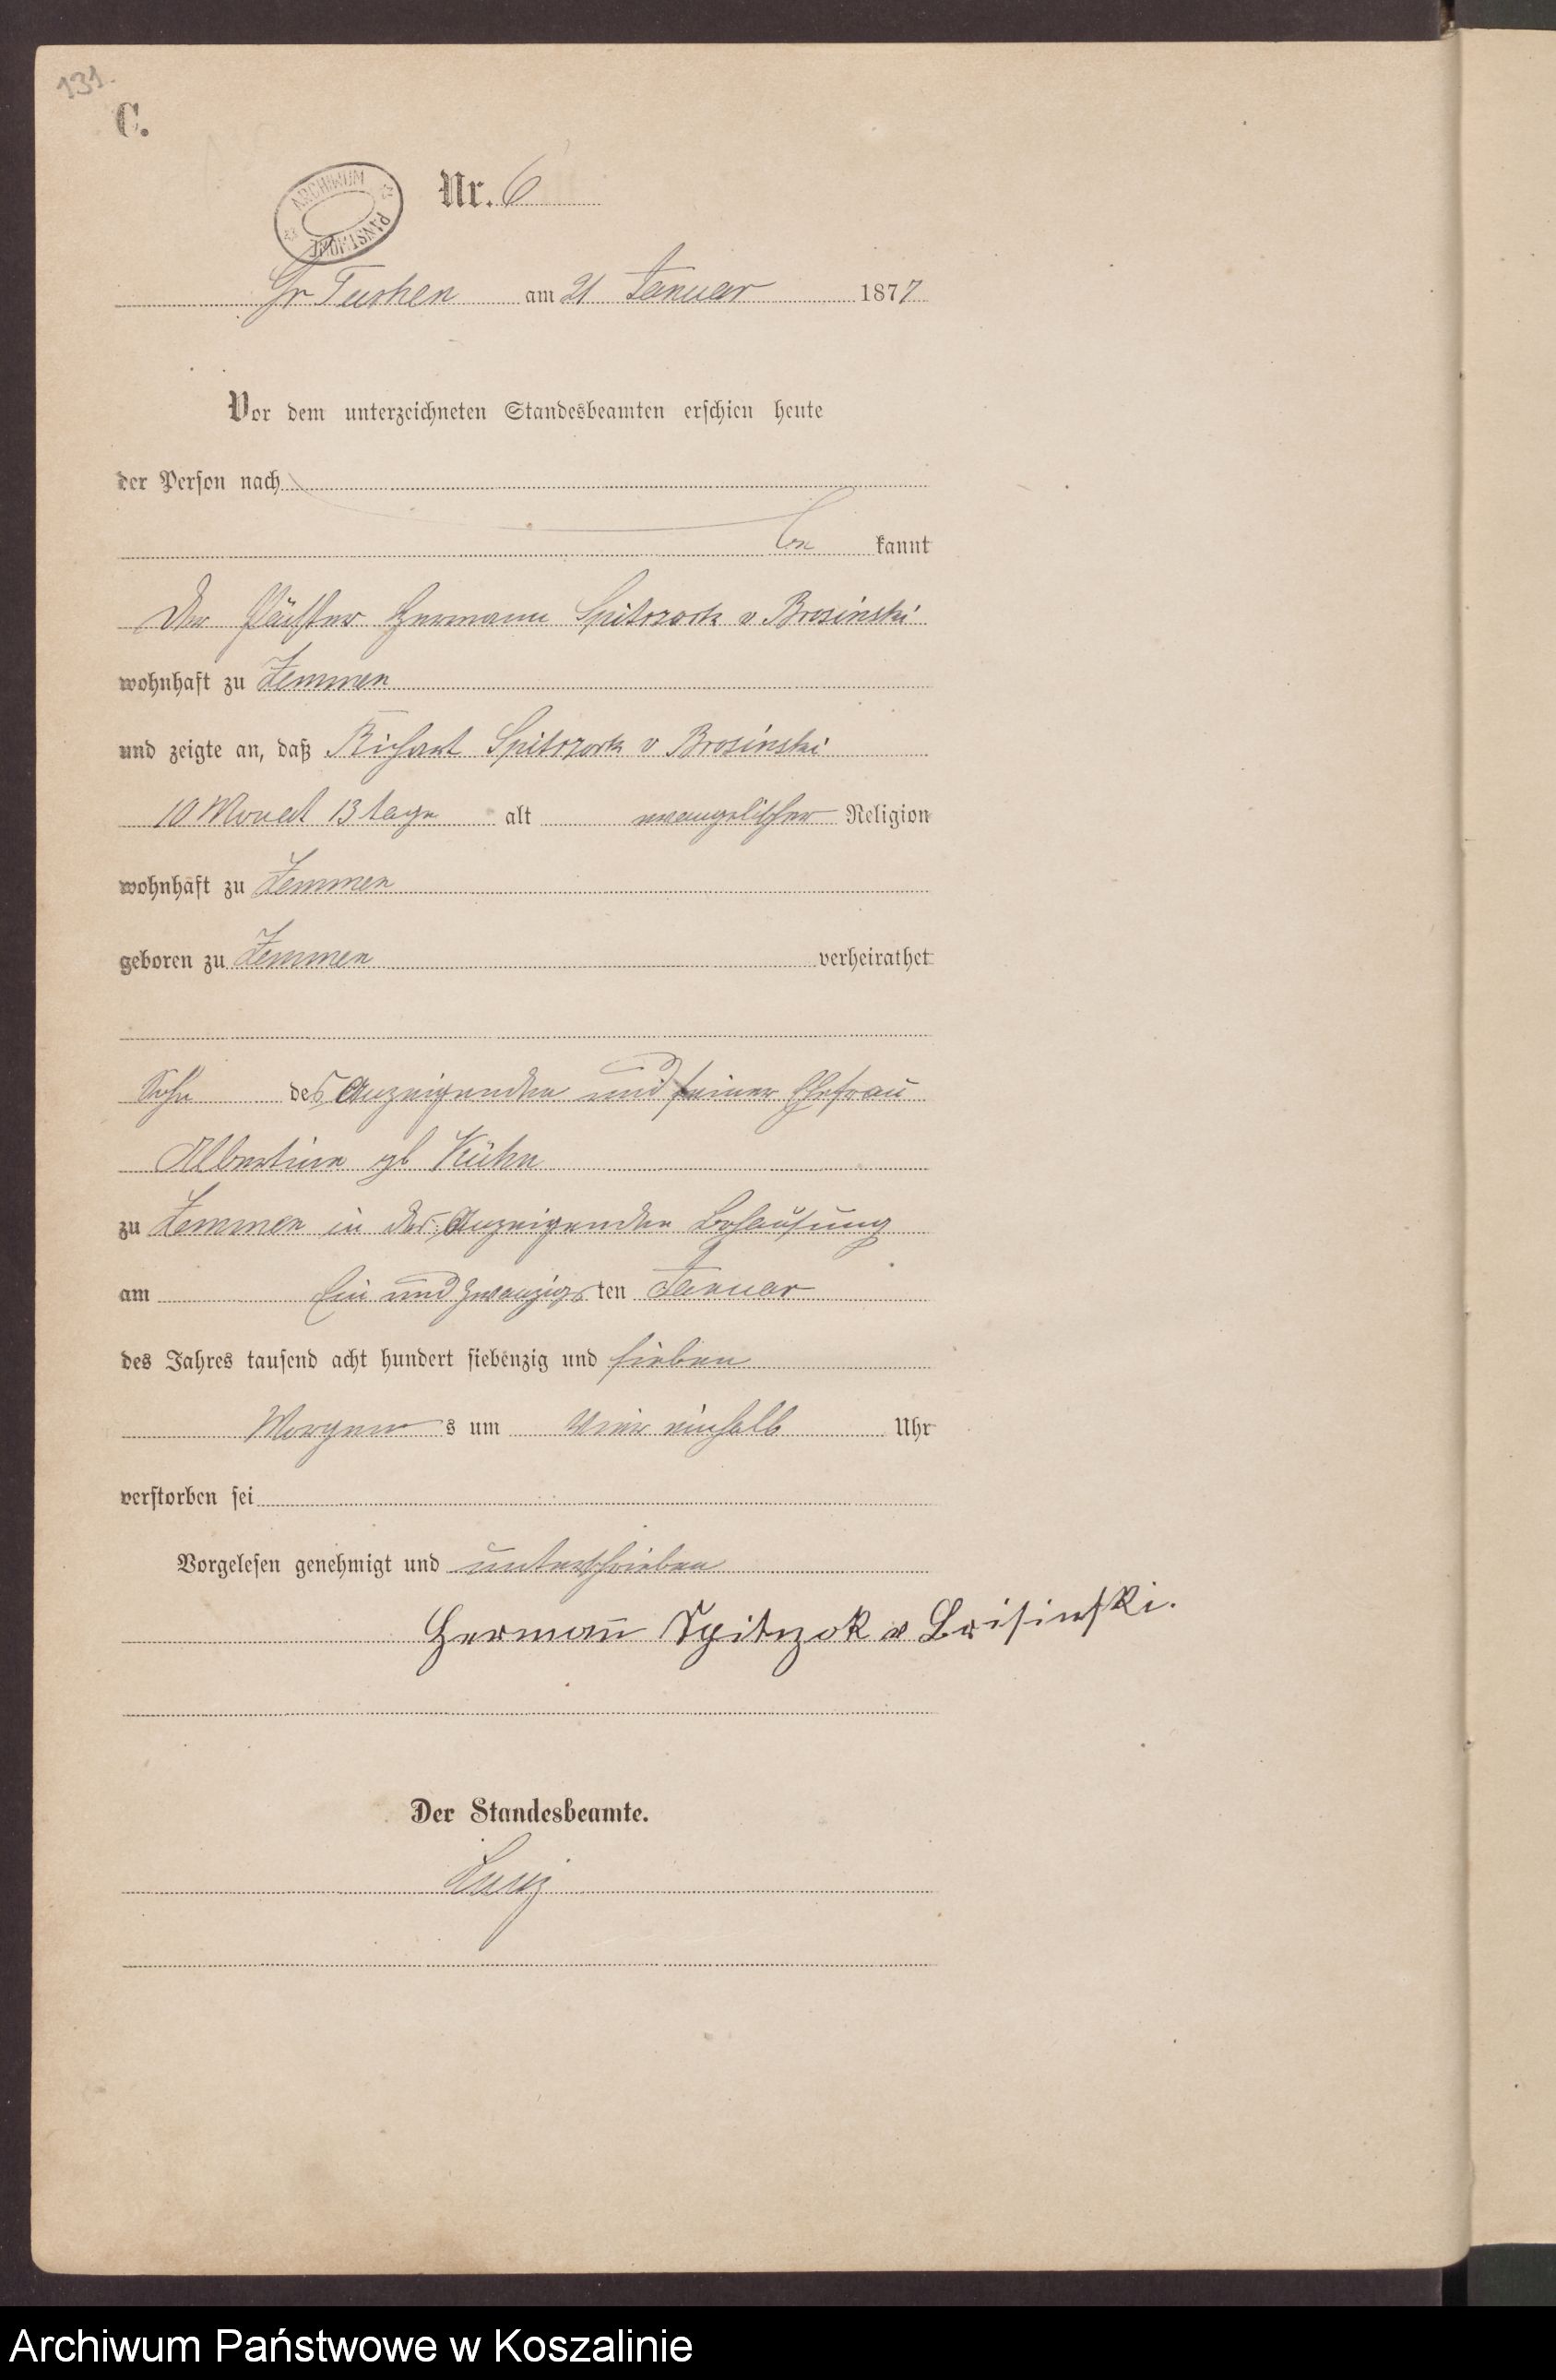 131.
C.
ARCHIWUM PAŃSTWOWE
Nr. 6
Gr Tuchen am 21 Januar 1877
Vor dem unterzeichneten Standesbeamten erschien heute
der Person nach
be kannt
Der Pächter Hermann Spitzzock v Brosinski
wohnhaft zu Zemmen
und zeigte an, daß Richart Spitzzock v Brosinski
10 Monat 13 tage alt evangelischer Religion
wohnhaft zu Zemmen
geboren zu Zemmen verheirathet
Sohn des Anzeigenden und seiner Ehefrau
Albertine gb Kühn
zu Zemmen in des Anzeigenden Behausung
am Ein und zwanzigs ten Januar
des Jahres tausend acht hundert siebenzig und sieben
Morgens um Vier einhalb Uhr
verstorben sei
Vorgelesen genehmigt und unterschrieben
Hermann Spitzok v Brisinski.
Der Standesbeamte.
Archiwum Państwowe w Koszalinie